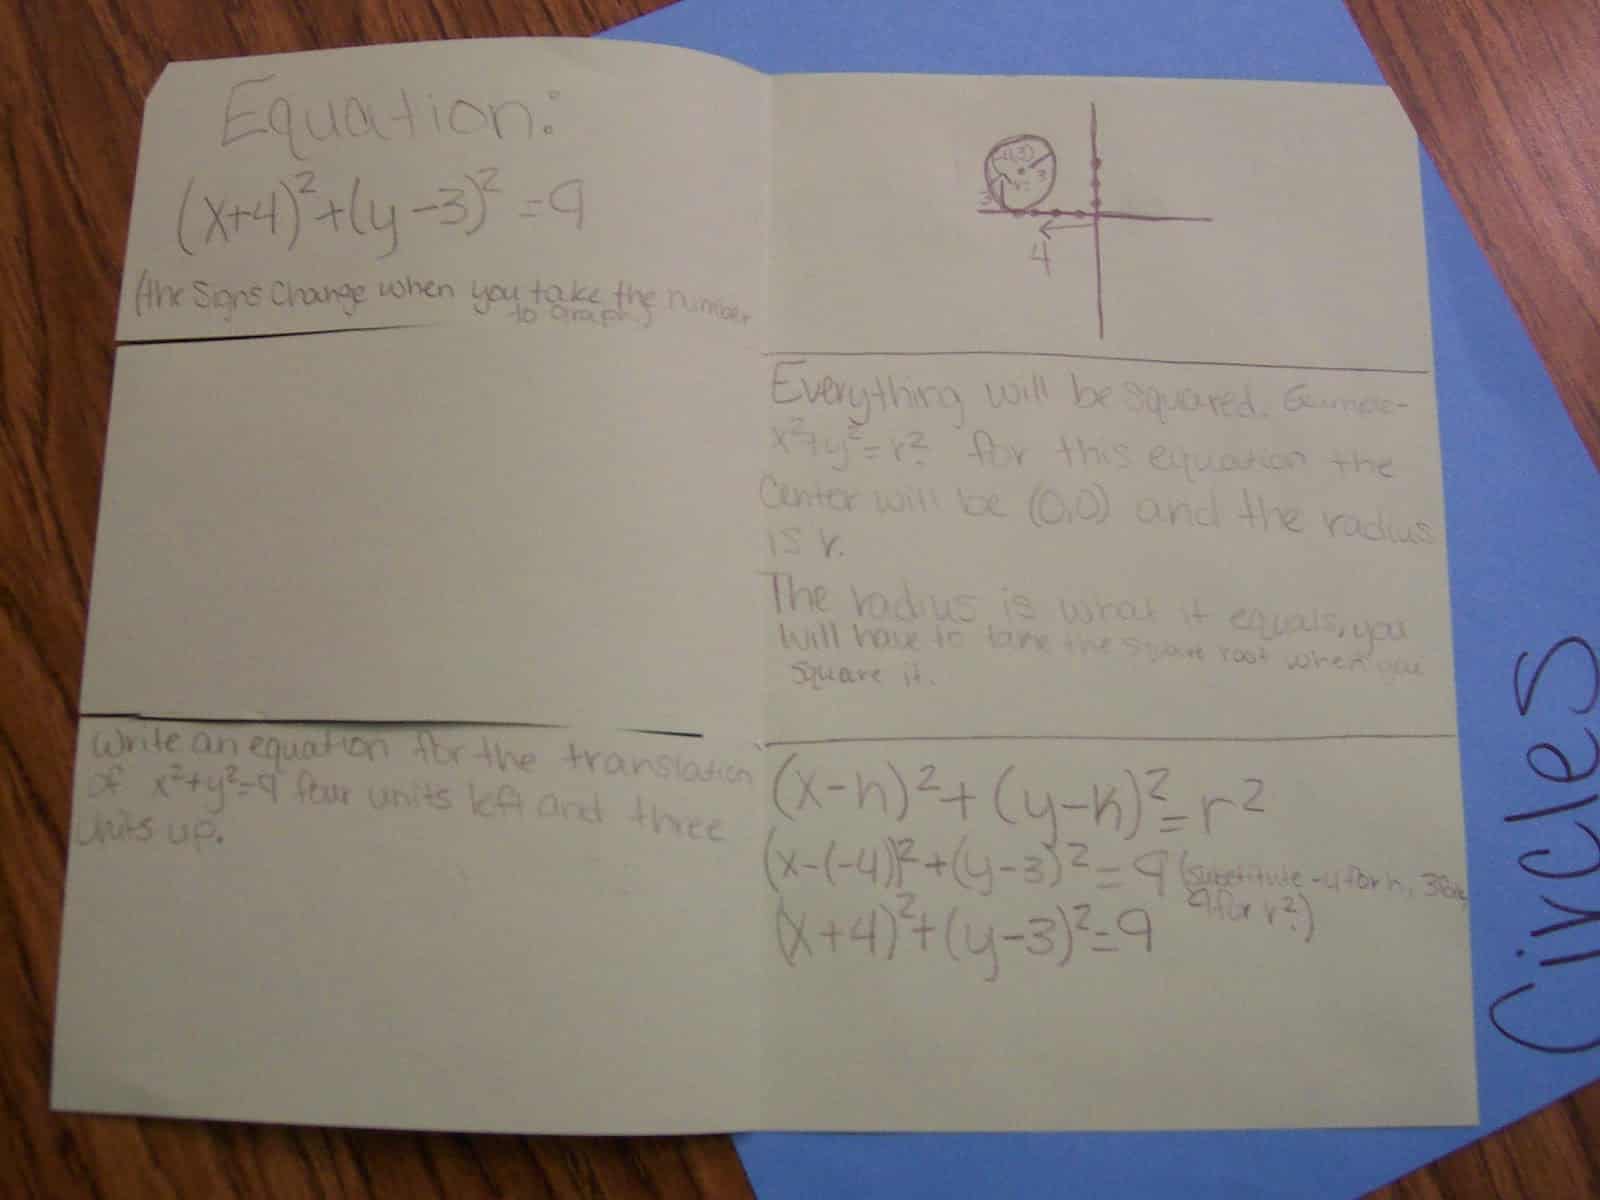 Equation:
(x+4)²+(y-3)²=9
(the signs change when you take the number
to graph)
3
4
Everything will be squared.
x²+y²=r². for this equation the
center will be (0,0) and the radius
is r.
The radius is what it equals, you
will have to take the square root when you
square it.
Write an equation for the translation
of x²+y²=9 four units left and three
units up.
(x-h)²+(y-k)²=r²
(x-(-4)²+(y-3)²=9 (substitute -4 for h, 3
9 for r².)
(x+4)²+(y-3)²=9
Circles